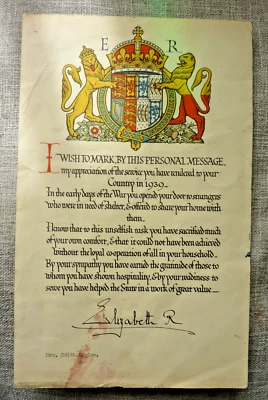 E R
I WISH TO MARK, BY THIS PERSONAL MESSAGE,
my appreciation of the service you have rendered to your
Country in 1939.
In the early days of the War you opened your door to strangers
who were in need of shelter, & offered to share your home with
them.
I know that to this unselfish task you have sacrificed much
of your own comfort, & that it could not have been achieved
without the loyal co-operation of all in your household.
By your sympathy you have earned the gratitude of those to
whom you have shown hospitality, & by your readiness to
serve you have helped the State in a work of great value.
Elizabeth R
Mrs.